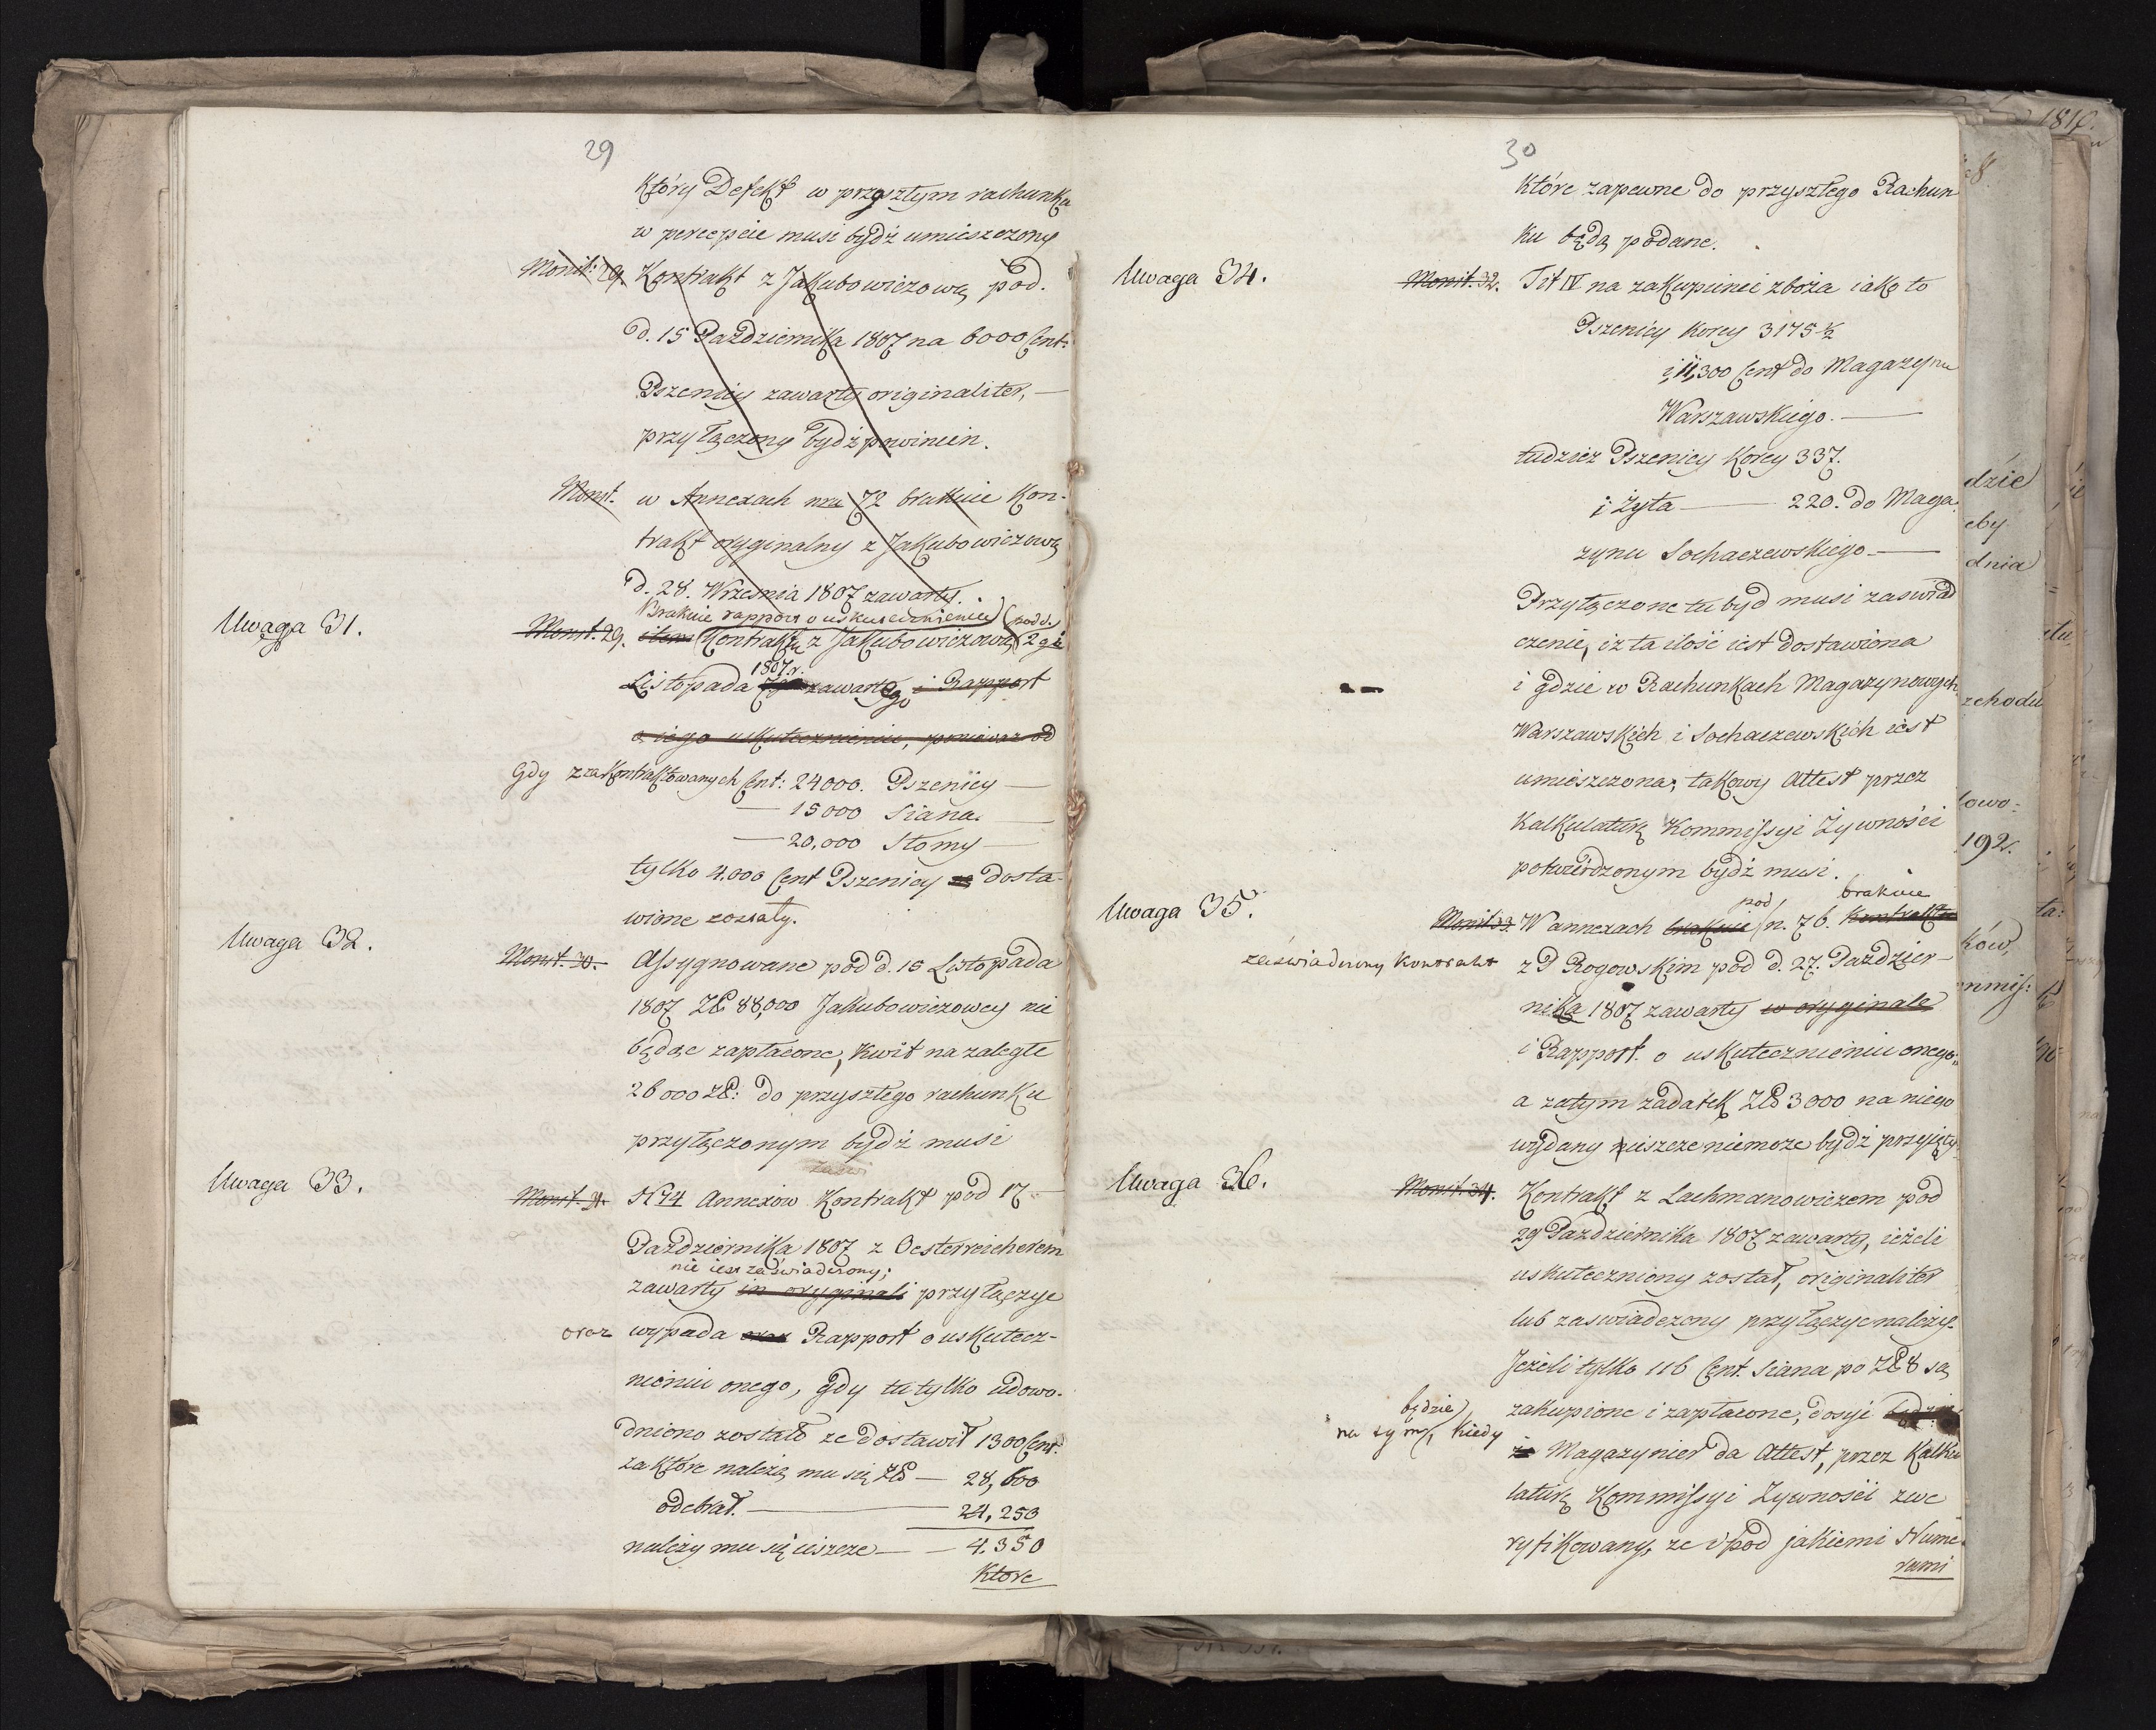 29
który Defekt w przyszłym rachunku
w percepcie musi bydź umieszczony
Monit: 29. Kontrakt z Jakubowiczową pod.
d. 15 Października 1807 na 6000 Cent:
Pszenicy zawarty originaliter,
przyłączony bydź powinien.
Monit. w Annexach nra 72 brakuie Kon-
trakt oryginalny z Jakubowiczową
d. 28. Września 1807 zawarty.
Brakuie rapport o uskutecznieniu pod d.
Uwaga 31.
Monit. 29. item Kontraktu z Jakubowiczową 2go
1807 r.
Listopada zawartego i Rapport
o iego uskutecznieniu, ponieważ od
Gdy zzakontraktowanych Cent: 24000. Pszenicy —
— 15000 Siana. —
— 20,000 Słomy —
tylko 4.000 Cent Pszenicy dosta-
wione zostały.
Uwaga 32.
Monit. 30. Assygnowane pod d. 15 Listopada
1807 Zł 88,000 Jakubowiczowey nie
będąc zapłacone, kwit na zaległe
26000 Zł: do przyszłego rachunku
przyłączonym bydź musi
Uwaga 33.
Monit. 31. N 74 Annexow Kontrakt pod 17
Października 1807 z Oesterreicherem
nie iest zaświadczony;
zawarty in originali przyłączyc
oraz wypada oraz Rapport o uskutecz-
nieniu onego, gdy tu tylko udowo-
dniono zostało ze dostawił 1300 Cent:
za które należą mu się Zł — 28,600
odebrał. — 24,250
należy mu się ieszcze — 4.350
Które
30
które zapewne do przyszłego Rachun
ku będą podane.
Uwaga 34.
Monit. 32. Tit IV na zakupienie zboża iako to
Pszenicy Korcy 3175 ½
i 11,300 Cent do Magazynu
Warszawskiego. —
tudzież Pszenicy Korcy 337.
i Żyta — 220. do Maga
zynu Sochaczewskiego —
Przyłączone tu byd musi zaswiad
czenie, iz ta ilość iest dostawiona
i gdzie w Rachunkach Magazynowych
Warszawskich i Sochaczewskich iest
umieszczona; takowy Attest przez
Kalkulaturę Kommissyi Żywności
potwierdzonym bydź musi.
Uwaga 35.
pod brakuie
Monit 33. W annexach brakuie n. 76. Kontraktu
zaświadczony Kontrakt z P Rogowskim pod d. 27. Paździer-
nika 1807 zawarty w oryginale
i Rapport. o uskutecznieniu onego:
a zatym zadatek Zł 3000 na niego
wydany ieszcze niemoże bydź przyięty
Uwaga 36.
Monit. 34. Kontrakt z Lachmanowiczem pod
29 Października 1807 zawarty, ieżeli
uskuteczniony został, originaliter
lub zaswiadczony przyłączyc należy.
Jeżeli tylko 116 Cent. Siana po Zł 8 są
zakupione i zapłacone, dosyć będzie
będzie
na tym, kiedy
że Magazynier da Attest, przez Kalku
laturę Kommissyi Żywności zwe
ryfikowany, ze i pod jakiemi Nume
rami
1810.
dzie
eby
dnia
zchodu
192.
ków,